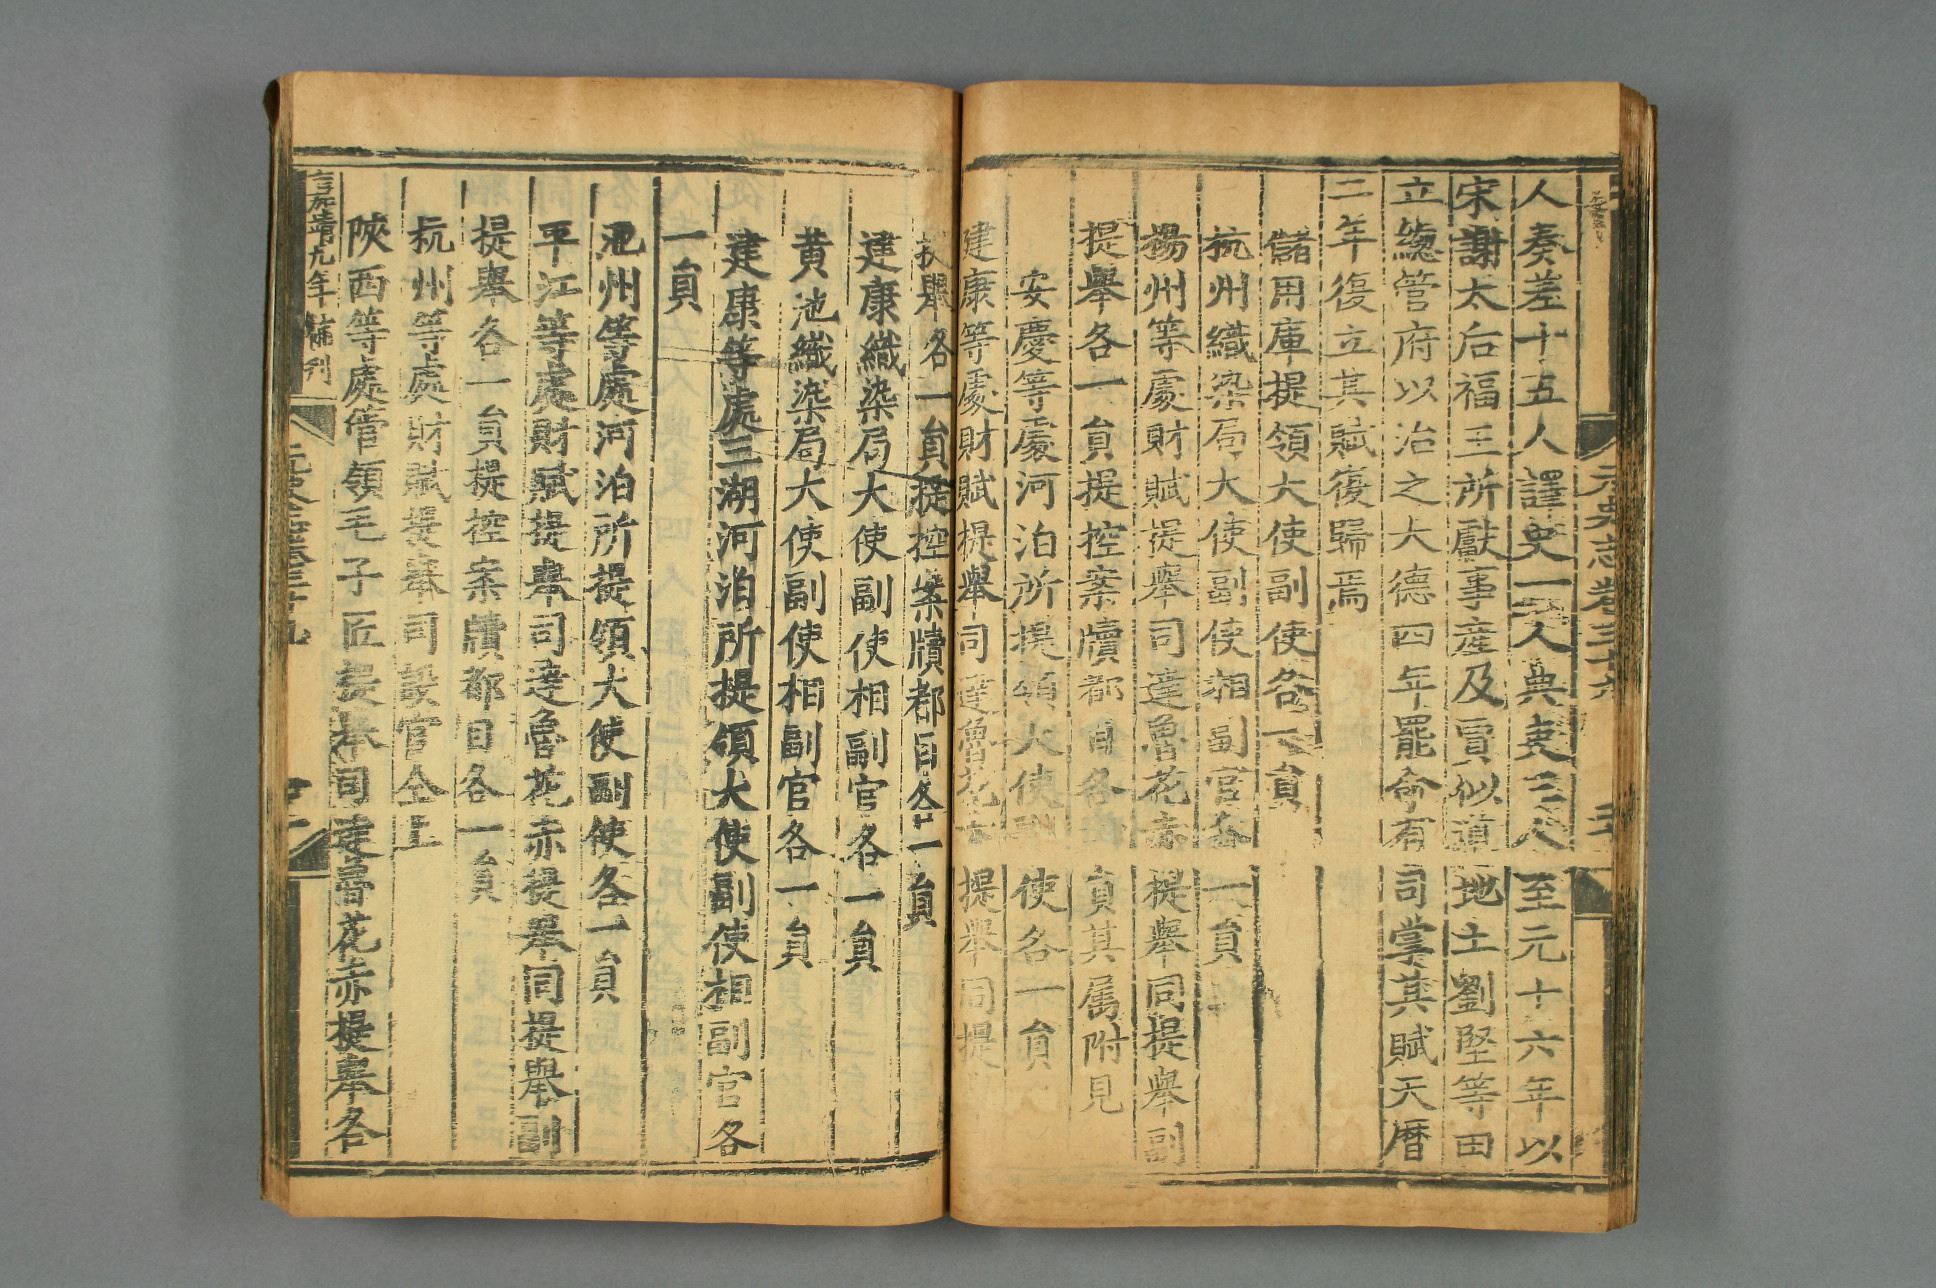 元史志卷三十九
人奏差十五人譯史一人典吏三人至元十六年以
宋謝太后福王所獻事産及賈似道地土劉堅等田
立緫管府以治之大德四年罷命有司掌其賦天曆
二年復立其賦復歸焉
儲用庫提領大使副使各一員
杭州織染局大使副使相副官各一員
揚州等處財賦提舉司達魯花赤提舉同提舉副
提舉各一員提控案牘都目各一員其属附見
安慶等處河泊所提領大使副使各一員
建康等處財賦提舉司達魯花赤提舉同提
提舉各一員提控案牘都目各一員
建康織染局大使副使相副官各一員
黄池織染局大使副使相副官各一員
建康等處三湖河泊所提領大使副使相副官各
一員
池州等處河泊所提領大使副使各一員
平江等處財賦提舉司達魯花赤提舉同提舉副
提舉各一員提控案牘都目各一員
杭州等處財賦提舉司設官仝上
陝西等處管領毛子匠提舉司達魯花赤提舉各
嘉靖九年補刊
元史志卷三十九